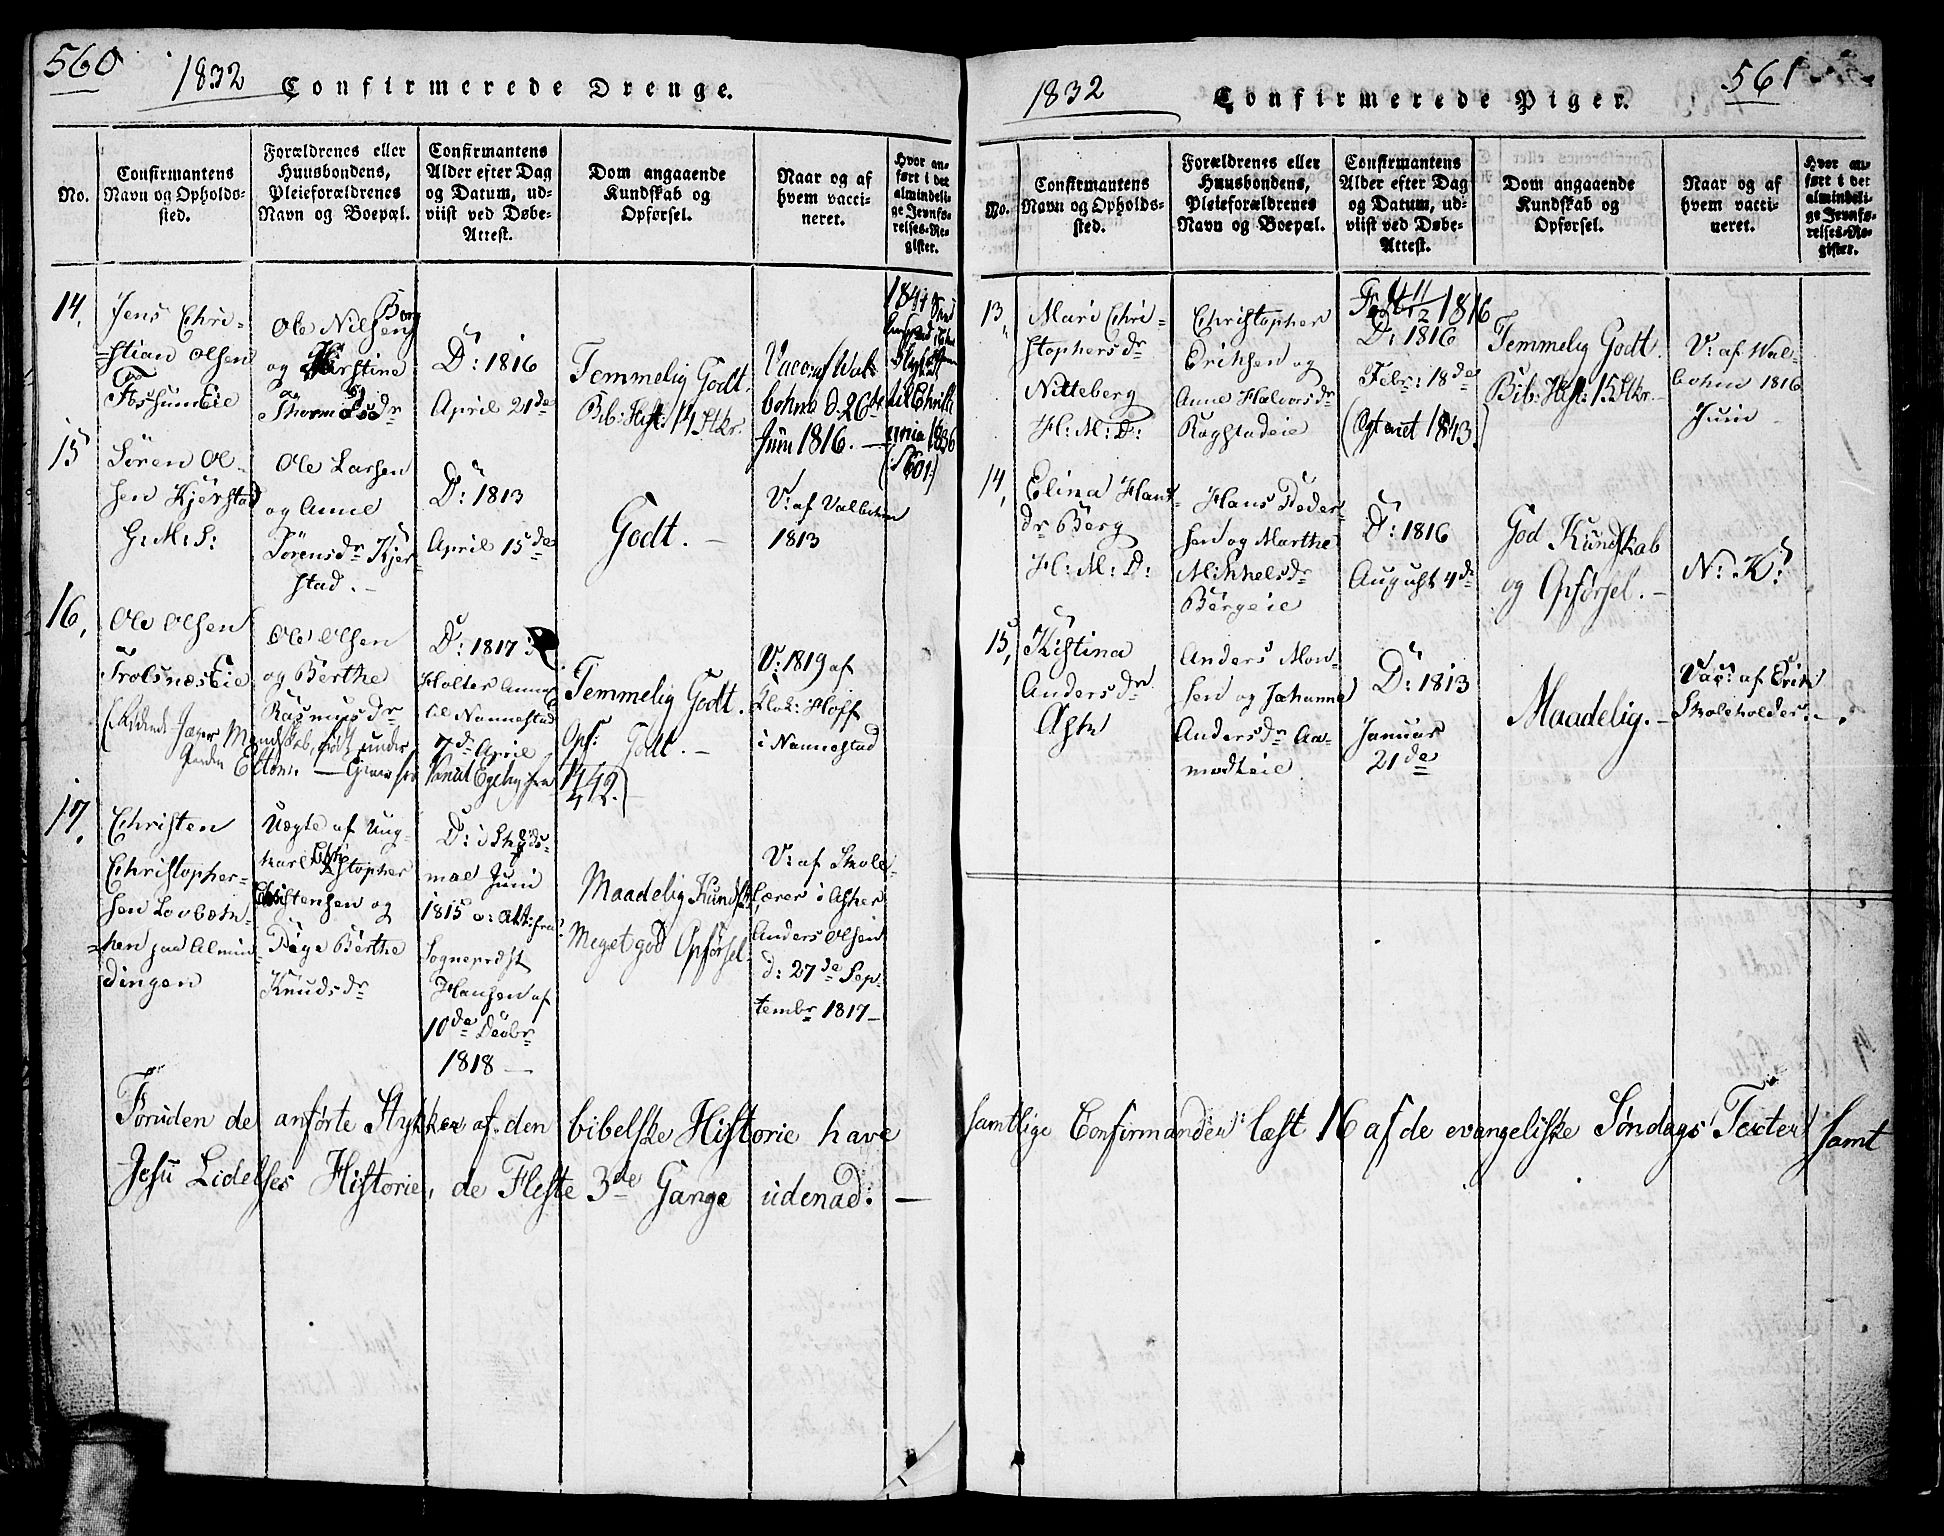 560
1832
Confirmerede Drenge.
No.
Confirmantens
Navn og Opholds-
sted.
Forældrenes eller
Huusbondens,
Pleieforældrenes
Navn og Boepæl.
Confirmantens
Alder efter Dag
og Datum, ud-
viist ved Døbe-
Attest.
Dom angaaende
Kundskab og
Opførsel.
Naar og af
hvem vacci-
neret.
Hvor an-
ført i det
almindeli-
ge Jevnfø-
relses-Re-
gister.
14.
Jens Chri-
stian Olsen
Fossum Eie
Ole Nilsen Borg
og Kirstine
Thormodsdr
D: 1816
April 21de
Temmelig Godt.
Bib: Hist: 14 Stkr.
Vacc: af Wal-
bohm d. 26de
Juni 1816. —
1844
til Christi-
ania 1836
(S 601.)
15
Søren Ol-
sen Kjerstad
G: M: S:
Ole Larsen
og Anne
Sørensdr Kjer-
stad. —
D: 1813
April 15de
Godt. —
V: af Valbohm
1813
16,
Ole Olsen
Trolsnæs Eie
Ole Olsen
og Berthe
Rasmusdr
D: 1817
Holter Annex
til Nannestad
7de April
Temmelig Godt.
Opf: Godt. —
V: 1819 af
Klok: Hoff
i Nannestad
17,
Christen
Christopher-
sen Løvbæk-
ken paa Almin-
dingen
Uægte af Ung-
karl Christopher
Christensen og
Pige Berthe
Knudsdr
D: i Skyds-
moe Juni
1815 e: Att: fra
Sognepræst
Hansen af
10de Decbr
1818 —
Maadelig Kundsk:
Meget god Opførsel.
V: af Skole-
lærer i Asker
Anders Olsen
d: 27de Sep-
tembr 1817 —
Foruden de anførte Stykker af den bibelske Historie have
Jesu Lidelses Historie, de Fleste 3de Gange udenad: —
1832
Confirmerede Piger.
561
No.
Confirmantens
Navn og Opholds-
sted.
Forældrenes eller
Huusbondens,
Pleieforældrenes
Navn og Boepæl.
Confirmantens
Alder efter Dag
og Datum, ud-
viist ved Døbe-
Attest.
Dom angaaende
Kundskab og
Opførsel.
Naar og af
hvem vacci-
neret.
Hvor an-
ført i det
almindeli-
ge Jevnfø-
relses-Re-
gister.
13,
Mari Chri-
stophersdr
Nitteberg
H: M: D:
Christopher
Eriksen og
Anne Halvorsdr
Ragstadeie
Født 11/2 1816
D: 1816
Febr: 18de
(Egtviet 1843)
Temmelig Godt.
Bib: Hist: 15 Stkr. —
V: af Wal-
bohm 1816
Juni
14,
Elina Hans-
dr Berg
H: M: D:
Hans Peder-
sen og Marthe
Mikkelsdr
Bergeie
D: 1816
August 4de
God Kundskab
og Opførsel. —
N: K:
15,
Kistina
Andersdr
Ask
Anders Mon-
sen og Johanne
Andersdr Aa-
modteie
D: 1813
Januar
21de
Maadelig. —
Vac: af Erik
Skoleholder. —
samtlige Confirmander læst 16 af de evangeliske Søndags Texter samt